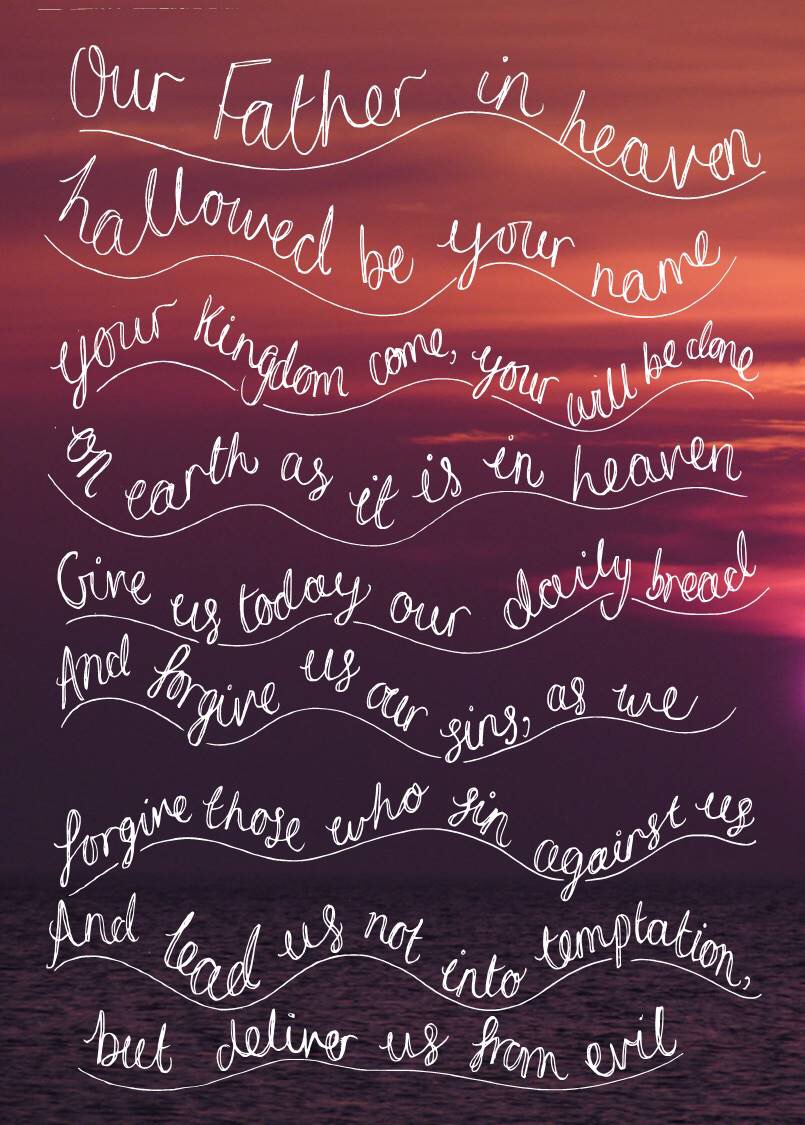 Our Father in heaven
hallowed be your name
your kingdom come, your will be done
on earth as it is in heaven
Give us today our daily bread
And forgive us our sins, as we
forgive those who sin against us
And lead us not into temptation,
but deliver us from evil